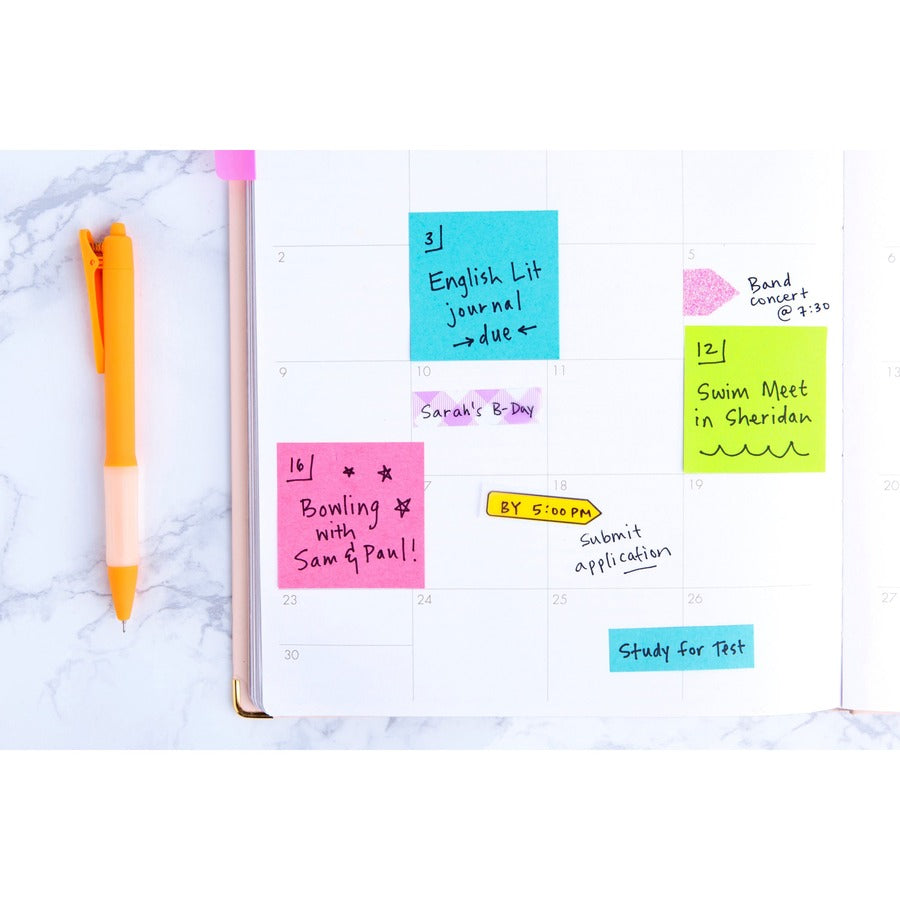 2
3
English Lit
journal
→due←
5
Band
concert
@ 7:30
6
9
10
Sarah's B-Day
11
12
Swim Meet
in Sheridan
13
16
Bowling
with
Sam & Paul!
17
18
BY 5:00PM
Submit
application
19
20
23
24
25
26
Study for Test
27
30